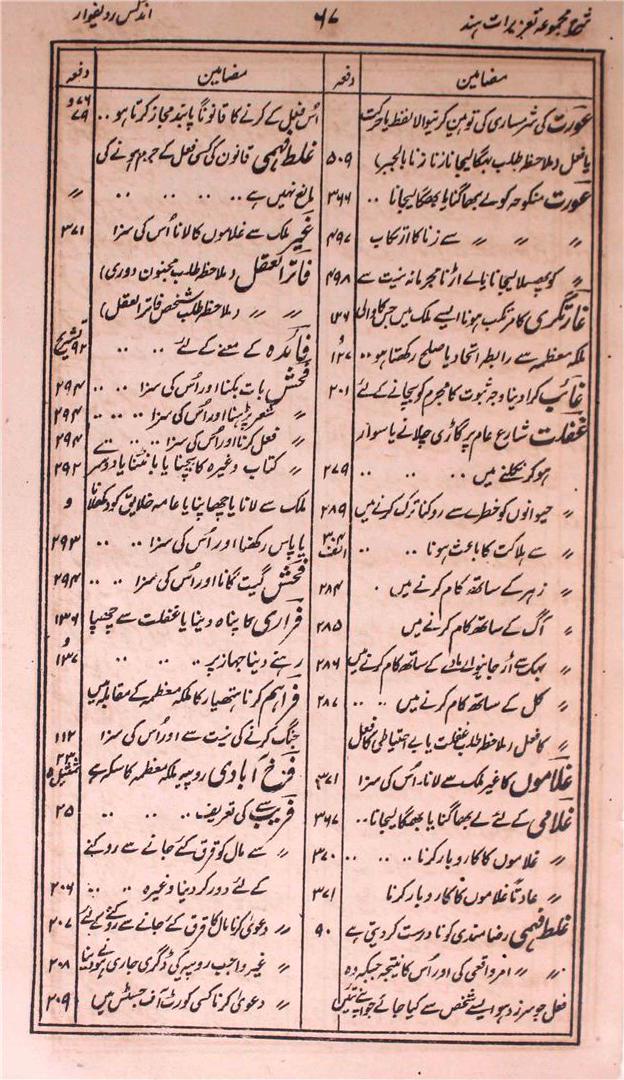 شرح مجموعہ تعزیرات ہند ۶۷ انڈکس ردیفوار
مضامین دفعہ
عورت کی شرمساری کی توہین کرنیوالا لفظ یا حرکت
یا فعل (ملاحظہ طلب بھگا لیجانا زنا زنا بالجبر) ۵۰۹
عورت منکوحہ کو لے بھاگنا یا بھگا لیجانا .. ۳۶۶
〃 〃 〃 سے زنا کا ارتکاب ۴۹۷
〃 کو پھسلا لیجانا یا لے اڑنا مجرمانہ نیت سے ۴۹۸
غارتگری کا مرتکب ہونا ایسے ملک میں جس کا والی ۱۲۶
ملکہ معظمہ سے رابطہ اتحاد یا صلح رکھتا ہو .. و ۱۲۷
غائب کرا دینا وجہ ثبوت کا مجرم کو بچانے کے لئے ۲۰۱
غفلت شارع عام پر گاڑی چلانے یا سوار
ہو کر نکلنے میں .. .. .. ۲۷۹
〃 حیوانوں کو خطرے سے روکنا ترک کرنے میں ۲۸۹
〃 سے ہلاکت کا باعث ہونا .. .. ۳۰۴ الف
〃 زہر کے ساتھ کام کرنے میں . ۲۸۴
〃 آگ کے ساتھ کام کرنے میں ۲۸۵
〃 بھک سے اڑ جانیوالے مادے کے ساتھ کام کرنے میں ۲۸۶
〃 کل کے ساتھ کام کرنے میں .. .. ۲۸۷
〃 کا فعل (ملاحظہ طلب غفلت یا بے احتیاطی کا فعل
غلاموں کا غیر ملک سے لانا۔ اس کی سزا ۳۷۱
غلامی کے لئے لے بھاگنا یا بھگا لیجانا .. ۳۶۷
〃 غلاموں کا کاروبار کرنا .. .. .. ۳۷۰
〃 عادتاً غلاموں کا کاروبار کرنا ۳۷۱
غلط فہمی رضامندی کو نادرست کر دیتی ہے ۹۰
〃 〃 امر واقعی کی اور اُس کا نتیجہ جبکہ وہ
فعل جو سرزد ہو ایسے شخص سے کیا جائے جو اپنے تئیں
مضامین دفعہ
اُس فعل کے کرنے کا قانوناً پابند مجاز کرتا ہو .. ۷۶ و ۷۹
غلط فہمی قانون کی کسی فعل کے جرم ہونے کی
مانع نہیں ہے .. .. .. .. 〃
غیر ملک سے غلاموں کا لانا اُس کی سزا ۳۷۱
فاتر العقل (ملاحظہ طلب مجنون دوری)
〃 〃 (ملاحظہ طلب شخص فاتر العقل)
فائدہ کے معنے کے لئے .. .. .. ۹۲ تشریح
فحش بات بکنا اور اُس کی سزا .. .. ۲۹۴
〃 شعر پڑہنا اور اُس کی سزا .. .. .. ۲۹۴
〃 فعل کرنا اور اُس کی سزا .. .. ۲۹۴
〃 کتاب وغیرہ کا بیچنا یا بانٹنا یا دوسرے ۲۹۲
ملک سے لانا یا چھاپنا یا عامہ خلایق کو دکھلانا و
یا پاس رکھنا اور اُس کی سزا .. .. ۲۹۳
فحش گیت گانا اور اُس کی سزا .. .. ۲۹۴
فراری کا پناہ دینا یا غفلت سے چھپا ۱۳۶
رہنے دینا جہاز پر .. .. .. و ۱۳۷
فراہم کرنا ہتھیار کا ملکہ معظمہ کے مقابلہ میں
جنگ کرنے کی نیت سے اور اُس کی سزا ۱۲۲
فرخ آبادی روپیہ ملکہ معظمہ کا سکہ ہے ۲۳۰ تمثیل ۵
فریب کی تعریف .. .. .. ۲۵
〃 سے مال کو قرق کئے جانے سے روکنے
کے لئے دور کر دینا وغیرہ .. .. ۲۰۶
〃 دعویٰ کرنا مال کا قرق کئے جانے سے روکنے کے لئے ۲۰۷
〃 غیر واجب روپیہ کی ڈگری جاری ہونے دینا ۲۰۸
〃 دعویٰ کرنا کسی کورٹ آف جسٹس میں ۲۰۹